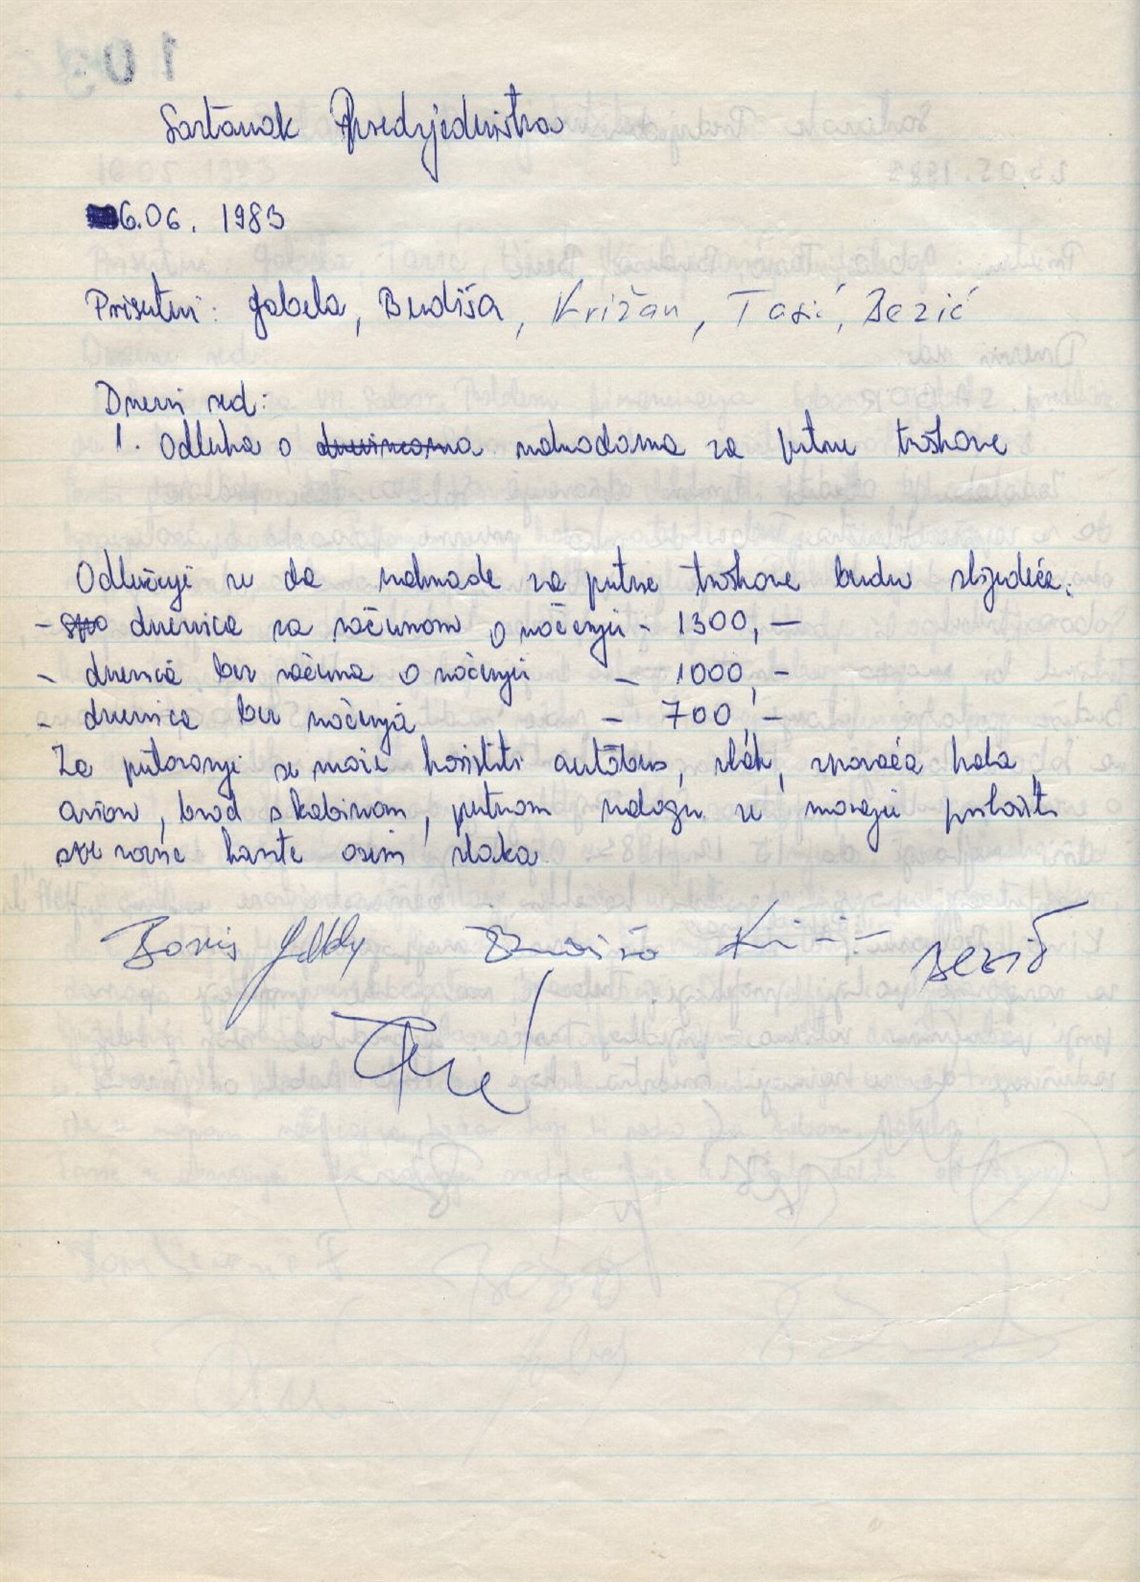 Sastanak Predsjedništva
6.06. 1983
Prisutni: Gabela, Budiša, Križan, Tasić, Bezić
Dnevni red:
1. Odluka o naknadama za putne troškove
Odlučuje se da naknade za putne troškove budu slijedeće:
- dnevnica sa računom o noćenju - 1300,-
- dnevnica bez računa o noćenju - 1000,-
- dnevnica bez noćenja - 700,-
Za putovanje se može koristiti autobus, vlak, spavaća kola,
avion, brod s kabinom, putnom nalogu se moraju priložiti
sve vozne karte osim vlaka.
Boris Budiša Bezić